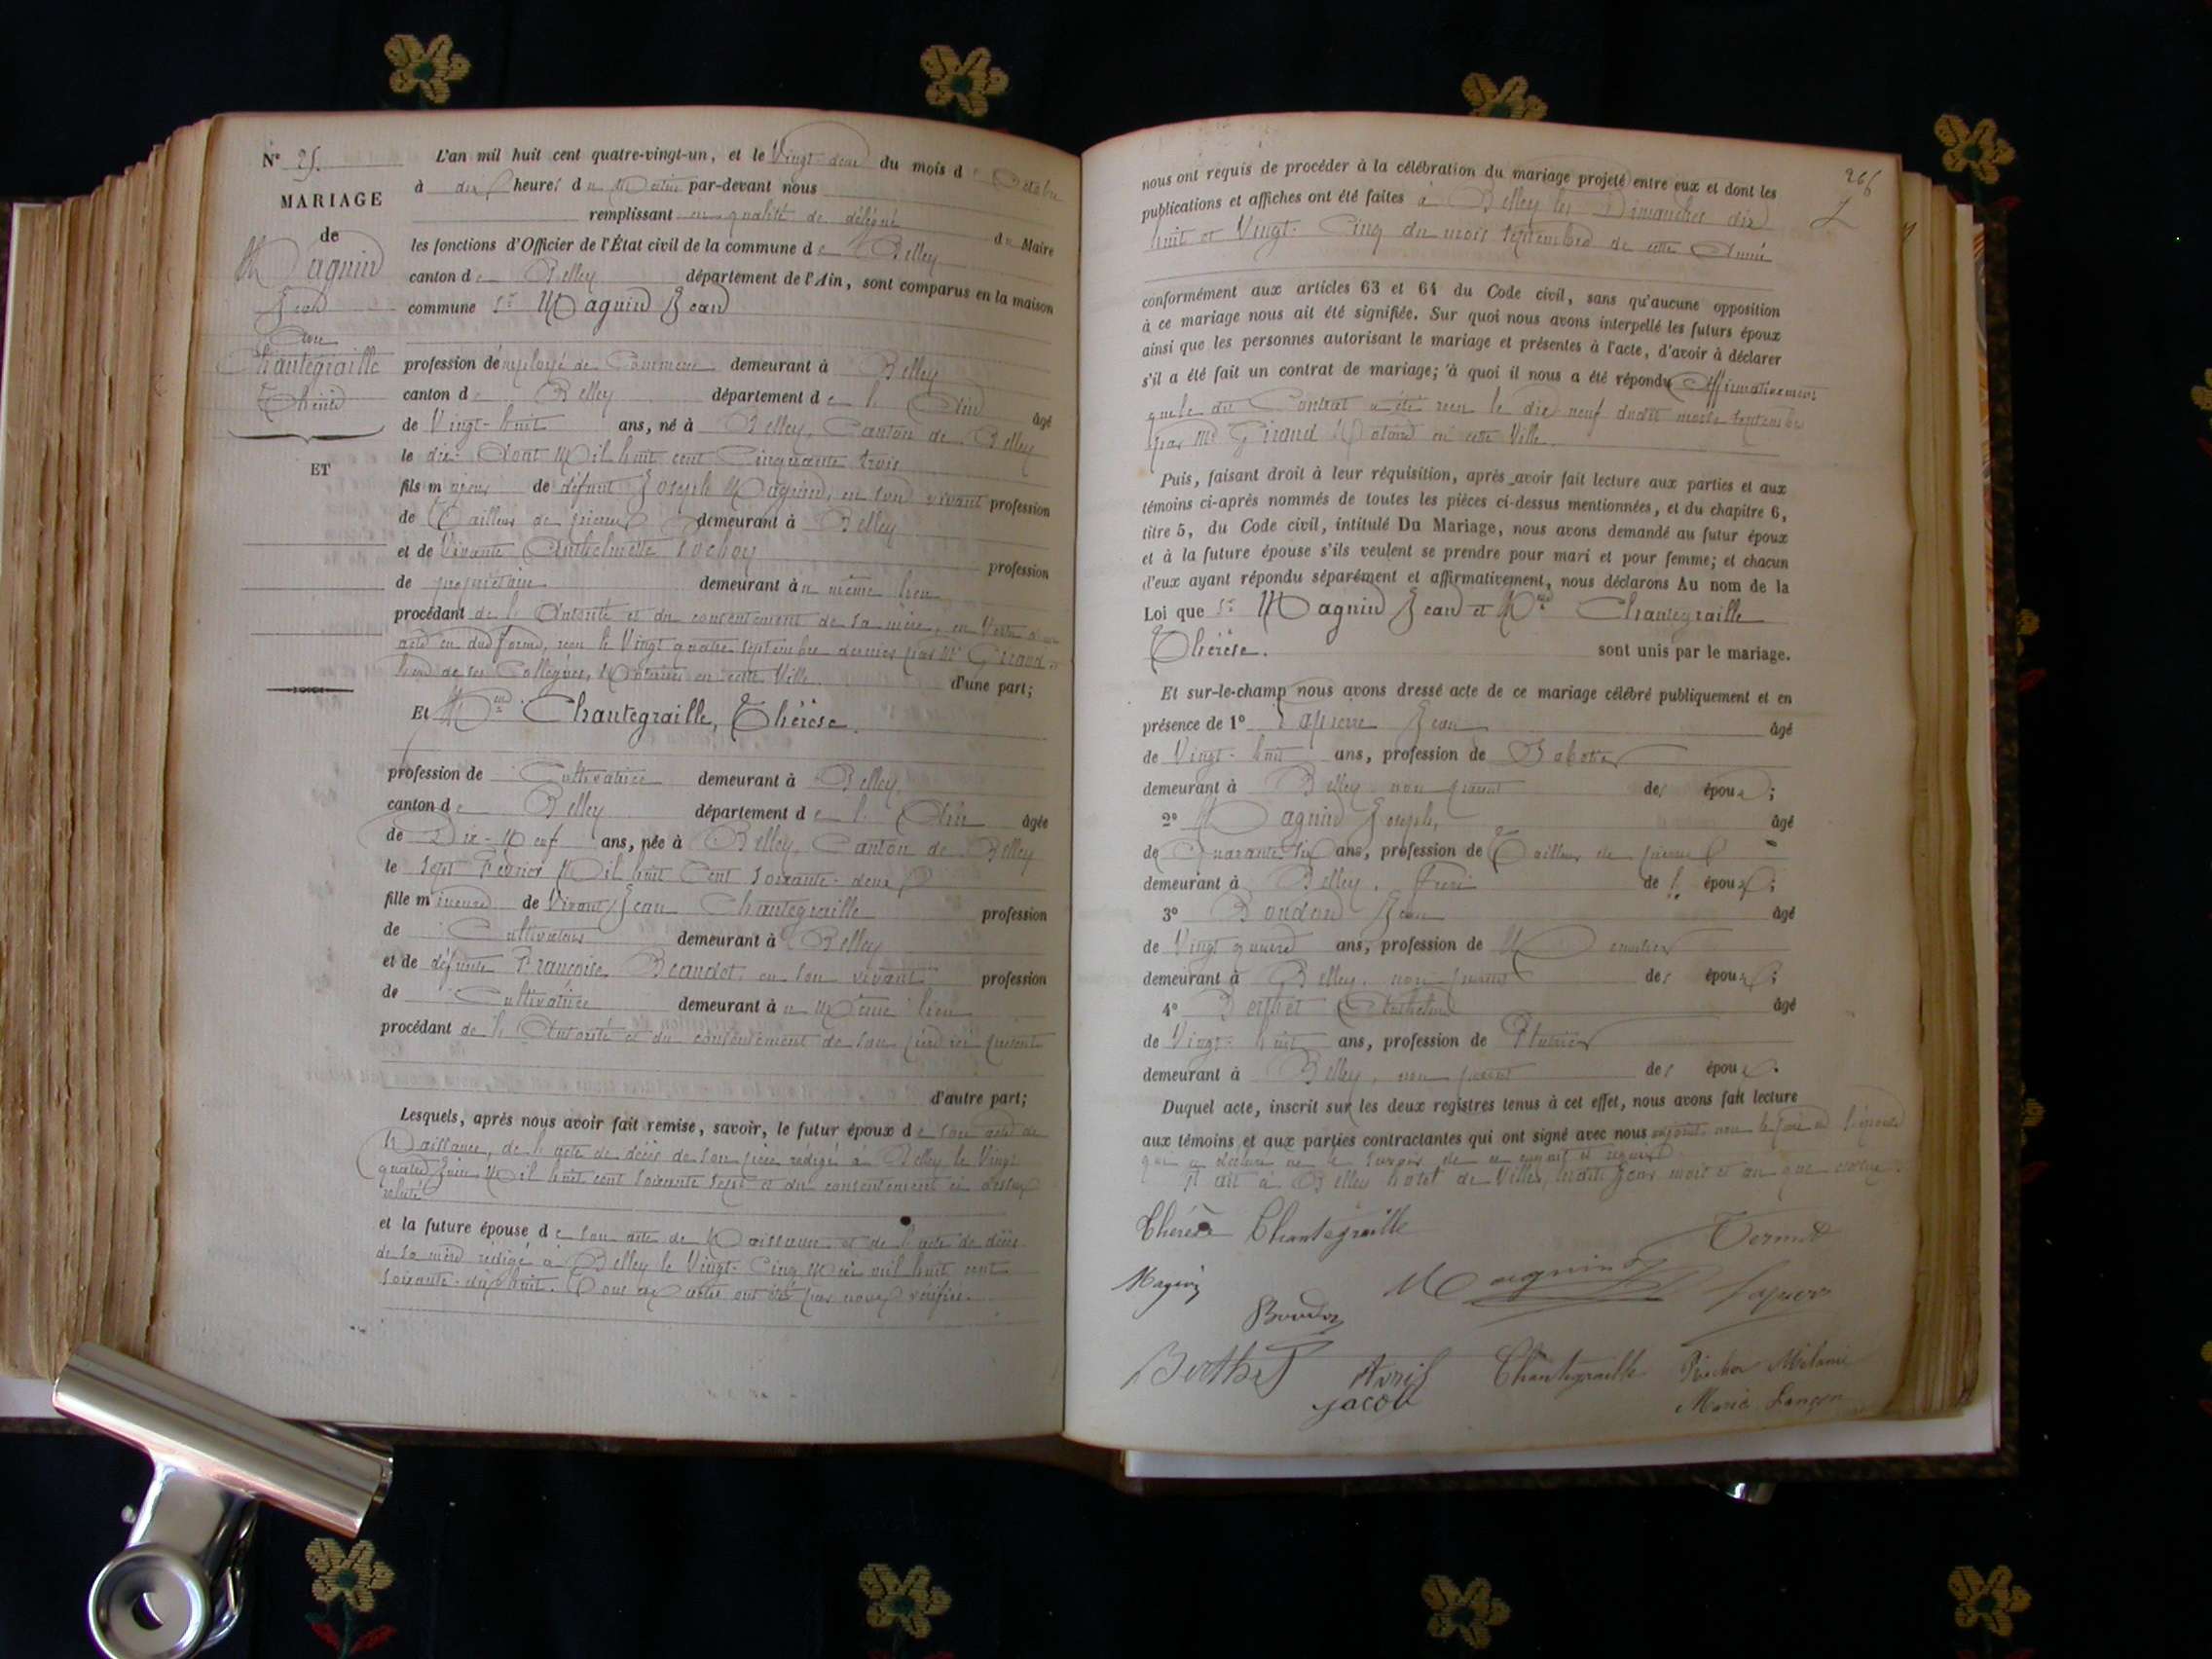 N° 25.
MARIAGE
de
Magnin
Jean
Avec
Chantegraille
Thérèse
ET
L'an mil huit cent quatre-vingt-un, et le Vingt-deux du mois de Octobre
à dix heures du Matin par-devant nous
remplissant en qualité de délégué du Maire
les fonctions d'Officier de l'État civil de la commune de Belley
canton de Belley département de l'Ain, sont comparus en la maison
commune Sr Magnin Jean
profession d'employé de Commerce demeurant à Belley
canton de Belley département de l'Ain âgé
de Vingt-huit ans, né à Belley, Canton de Belley
le dix Août Mil huit cent Cinquante trois
fils majeur de défunt Joseph Magnin, en son vivant profession
de Tailleur de pierres demeurant à Belley
et de Vivante Anthelmette Sochay profession
de propriétaire demeurant à u même lieu
procédant de l'Autorité et du consentement de sa mère, en Vertu d'un
acte en due forme, reçu le Vingt quatre septembre dernier par Me Giraud
l'un de ses Collègues, Notaires en cette Ville. d'une part;
Et Mlle Chantegraille, Thérèse.
profession de Cultivatrice demeurant à Belley
canton de Belley département de l'Ain âgée
de Dix-Neuf ans, née à Belley, Canton de Belley
le Sept Février Mil huit Cent Soixante-deux
fille mineure de Vivant Jean Chantegraille profession
de Cultivateur demeurant à Belley
et de défunte Françoise Beaudet, en son vivant profession
de Cultivatrice demeurant à u Même lieu
procédant de l'Autorité et du consentement de son père ici présent
d'autre part;
Lesquels, après nous avoir fait remise, savoir, le futur époux de son acte de
Naissance, de l'acte de décès de son père rédigé à Belley le Vingt
quatre Juin Mil huit cent soixante sept et du consentement ci dessus
relaté
et la future épouse de son acte de Naissance et de l'acte de décès
de sa mère rédigé à Belley le Vingt-Cinq Mai mil huit cent
soixante-dix huit. Tous ces actes ont été par nous vérifiés.
nous ont requis de procéder à la célébration du mariage projeté entre eux et dont les
publications et affiches ont été faites à Belley les Dimanches dix
huit et Vingt-Cinq du mois septembre de cette Année
conformément aux articles 63 et 64 du Code civil, sans qu'aucune opposition
à ce mariage nous ait été signifiée. Sur quoi nous avons interpellé les futurs époux
ainsi que les personnes autorisant le mariage et présentes à l'acte, d'avoir à déclarer
s'il a été fait un contrat de mariage; à quoi il nous a été répondu Affirmativement
que le dit Contrat a été reçu le dix neuf dudit mois de septembre
par Me Giraud Notaire en cette Ville.
Puis, faisant droit à leur réquisition, après avoir fait lecture aux parties et aux
témoins ci-après nommés de toutes les pièces ci-dessus mentionnées, et du chapitre 6,
titre 5, du Code civil, intitulé Du Mariage, nous avons demandé au futur époux
et à la future épouse s'ils veulent se prendre pour mari et pour femme; et chacun
d'eux ayant répondu séparément et affirmativement, nous déclarons Au nom de la
Loi que Sr Magnin Jean et Mlle Chantegraille
Thérèse. sont unis par le mariage.
Et sur-le-champ nous avons dressé acte de ce mariage célébré publiquement et en
présence de 1° Lapierre Jean âgé
de Vingt-huit ans, profession de Sabotier
demeurant à Belley non parent des époux;
2° Magnin Joseph, âgé
de Quarante-six ans, profession de Tailleur de pierres
demeurant à Belley. Frère de l' époux;
3° Boudon Jean âgé
de Vingt quatre ans, profession de Menuisier
demeurant à Belley, non parent des époux;
4° Berthet Anthelme âgé
de Vingt-huit ans, profession de Plâtrier
demeurant à Belley, non parent des époux.
Duquel acte, inscrit sur les deux registres tenus à cet effet, nous avons fait lecture
aux témoins et aux parties contractantes qui ont signé avec nous
qui a déclaré ne le savoir de ce enquis et requis.
Fait à Belley hotel de Ville, lesdits jour mois et an que dessus.
Thérèse Chantegraille
Magnin
Magnin
Boudon
Berthet
Avril
Jacob
Chantegraille
Mélanie
Marie